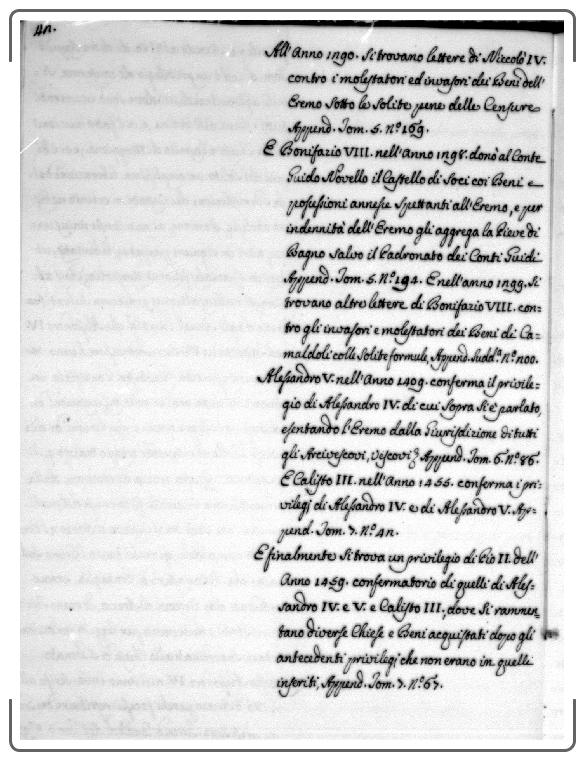 42.
All'Anno 1290. Si trovano lettere di Niccolò IV.
contro i molestatori ed invasori dei Beni dell'
Eremo sotto le solite pene delle Censure
Append. Tom. 5. N.º 169.
E Bonifazio VIII. nell'Anno 1298. donò al Conte
Guido Novello il Castello di Soci coi Beni e
possessioni annesse spettanti all'Eremo, e per
indennità dell'Eremo gli aggrega la Pieve di
Bagno salvo il Padronato dei Conti Guidi
Append. Tom. 5. N.º 194. E nell'anno 1299. Si
trovano altre lettere di Bonifazio VIII. con=
tro gli invasori e molestatori dei Beni di Ca=
maldoli colle Solite formule, Append. sudd.º N.º 200.
Alessandro V. nell'Anno 1409. conferma il privile=
gio di Alessandro IV. di cui sopra Si è parlato,
esentando l'Eremo dalla Giurisdizione di tutti
gli Arcivescovi, Vescovi &c. Append. Tom. 6. N.º 86.
E Calisto III. nell'Anno 1455. conferma i pri=
vilegj di Alessandro IV. e di Alessandro V. Ap=
pend. Tom. 7. N.º 42.
E finalmente Si trova un privilegio di Pio II. dell'
Anno 1459. confermatorio di quelli di Ales=
sandro IV. e V. e Calisto III., dove Si rammen=
tano diverse Chiese e Beni acquistati dopo gli
antecedenti privilegj che non erano in quelli
inseriti, Append. Tom. 7. N.º 67.